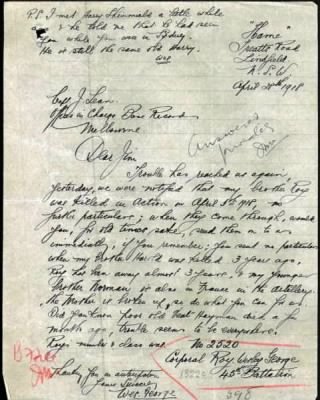 P.S. I met Harry Shimmald a little while
ago & he told me that he had seen
you while you were in Sydney.
He is still the same old Harry.
WG
"Home"
Treatts Road
Lindfield
N.S.W.
April 20th 1918
Capt J. Lean.
Officer in Charge Base Records
Melbourne
Answered
Dear Jim
Trouble has reached us again,
yesterday, we were notified that my brother Roy
was killed in Action on April 5th, 1918, no
further particulars; when they come through, would
you, for old times' sake, send them on to us
immediately, if you remember; you sent us particulars
when my brother Harold was killed 3 years ago,
Roy has been away almost 3 years, & my younger
brother Norman is also in France in the artillery.
The Mother is broken up, so do what you can for us.
Did you know poor old Hayman died a few
months ago, trouble seems to be everywhere.
Roy's number & class was No 2520
Corporal Roy George
45th Battalion
Thanking you in anticipation
Yours Sincerely
George